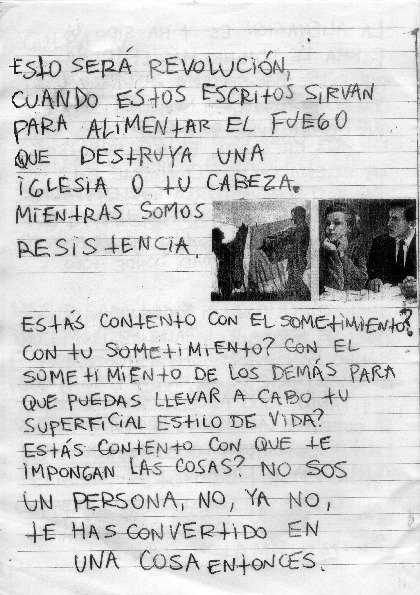 ESTO SERÁ REVOLUCIÓN,
CUANDO ESTOS ESCRITOS SIRVAN
PARA ALIMENTAR EL FUEGO
QUE DESTRUYA UNA
IGLESIA O TU CABEZA.
MIENTRAS SOMOS
RESISTENCIA.
ESTÁS CONTENTO CON EL SOMETIMIENTO?
CON TU SOMETIMIENTO? CON EL
SOMETIMIENTO DE LOS DEMÁS PARA
QUE PUEDAS LLEVAR A CABO TU
SUPERFICIAL ESTILO DE VIDA?
ESTÁS CONTENTO CON QUE TE
IMPONGAN LAS COSAS? NO SOS
UN PERSONA, NO, YA NO,
TE HAS CONVERTIDO EN
UNA COSA ENTONCES.